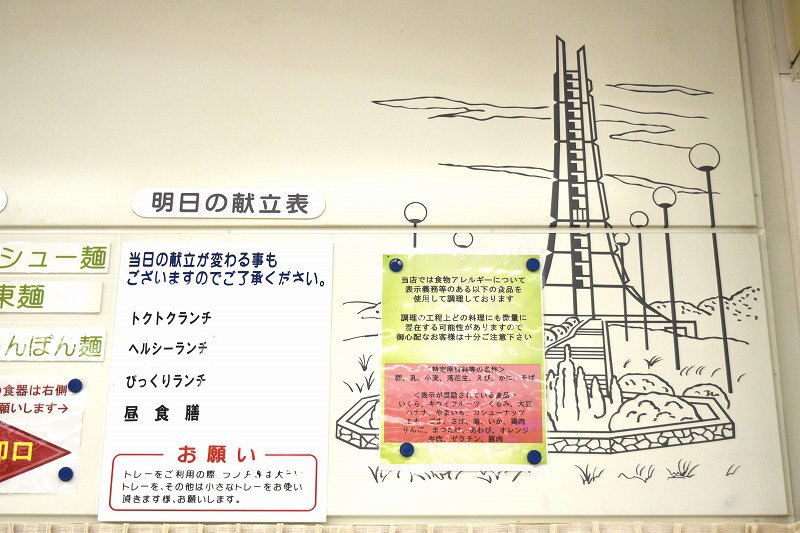 明日の献立表
シュー麺
東麺
ゃんぽん麺
の食器は右側
願いします→
却口
当日の献立が変わる事も
ございますのでご了承ください。
トクトクランチ
ヘルシーランチ
びっくりランチ
昼食膳
お願い
トレーをご利用の際
トレーを、その他は小さなトレーをお使い
頂きます様、お願いします。
当店では食物アレルギーについて
表示義務等のある以下の食品を
使用して調理しております
調理の工程上どの料理にも微量に
混在する可能性がありますので
御心配なお客様は十分ご注意下さい
<特定原材料等の名称>
卵、乳、小麦、落花生、えび、かに、そば
<表示が奨励されている食品>
いくら、キウイフルーツ、くるみ、大豆
バナナ、やまいも、カシューナッツ
もも、ごま、さば、鮭、いか、鶏肉
りんご、まつたけ、あわび、オレンジ
牛肉、ゼラチン、豚肉